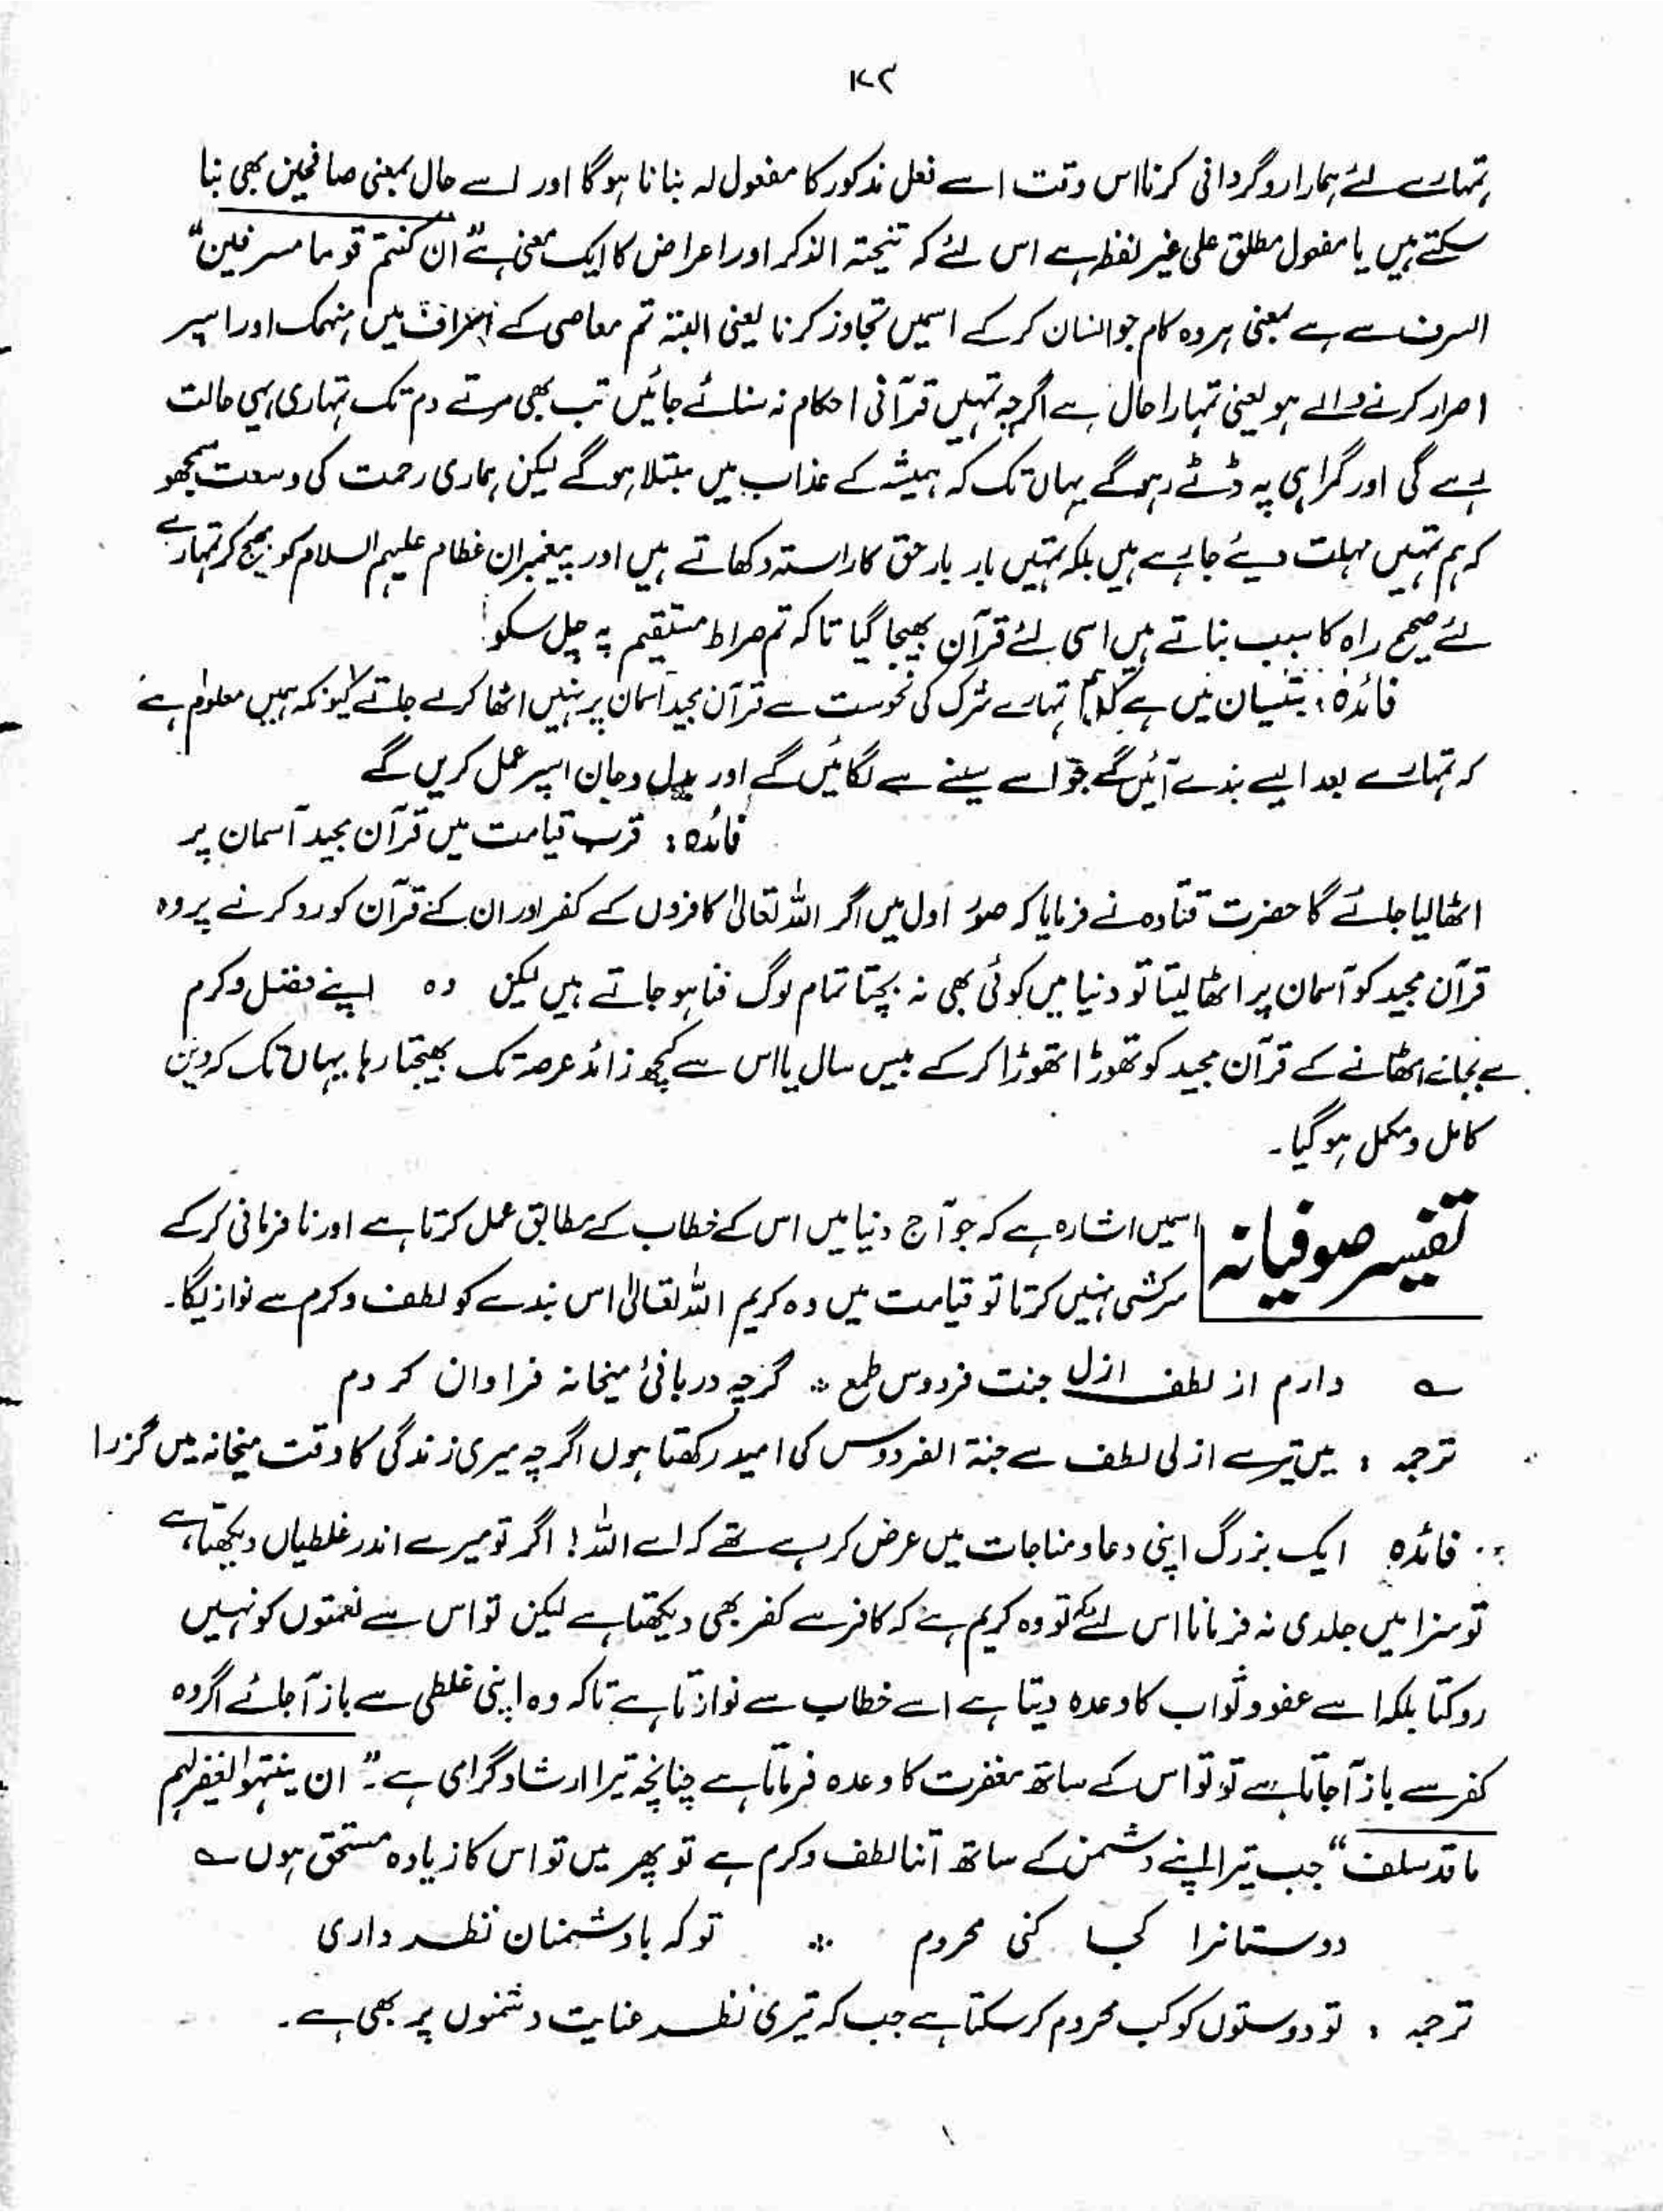 ۱۷۳
تمہارے لئے ہمارا روگردانی کرنا اس وقت اسے فعل مذکور کا مفعول لہ بنانا ہوگا اور اسے حال بمعنی صافحین بھی بنا
سکتے ہیں یا مفعول مطلق علی غیر لفظہ ہے اس لئے کہ تنحیتہ الذکر اور اعراض کا ایک معنی ہے " ان کنتم قوما مسرفین "
السرف سے ہے بمعنی ہر وہ کام جو انسان کر کے اسمیں تجاوز کرنا یعنی البتہ تم معاصی کے اسراف میں منہمک اور اسپر
اصرار کرنے والے ہو یعنی تمہارا حال ہے اگرچہ تمہیں قرآنی احکام نہ سنائے جائیں تب بھی مرتے دم تک تمہاری یہی حالت
رہے گی اور گمراہی پہ ڈٹے رہو گے یہاں تک کہ ہمیشہ کے عذاب میں مبتلا ہوگے لیکن ہماری رحمت کی وسعت سمجھو
کہ ہم تمہیں مہلت دیئے جا رہے ہیں بلکہ تمہیں بار بار حق کا راستہ دکھاتے ہیں اور پیغمبران عظام علیہم السلام کو بھیج کر تمہارے
لئے صحیح راہ کا سبب بناتے ہیں اسی لئے قرآن بھیجا گیا تاکہ تم صراط مستقیم پہ چل سکو
فائدہ : تبیان میں ہے کہ ہم تمہارے شرک کی نحوست سے قرآن مجید آسمان پر نہیں اٹھا کر لے جاتے کیونکہ ہمیں معلوم ہے
کہ تمہارے بعد ایسے بندے آئیں گے جو اسے سینے سے لگائیں گے اور بدل و جان اسپر عمل کریں گے
فائدہ : قرب قیامت میں قرآن مجید آسمان پر
اٹھا لیا جائے گا حضرت قتادہ نے فرمایا کہ صدر اول میں اگر اللہ تعالیٰ کافروں کے کفر اور ان کے قرآن کو رد کرنے پر وہ
قرآن مجید کو آسمان پر اٹھا لیتا تو دنیا میں کوئی بھی نہ بچتا تمام لوگ فنا ہو جاتے ہیں لیکن وہ اپنے فضل و کرم
سے بجائے اٹھانے کے قرآن مجید کو تھوڑا تھوڑا کر کے بیس سال یا اس سے کچھ زائد عرصہ تک بھیجتا رہا یہاں تک کہ دین
کامل و مکمل ہو گیا ۔
تفسیر صوفیانہ
اسمیں اشارہ ہے کہ جو آج دنیا میں اس کے خطاب کے مطابق عمل کرتا ہے اور نافرمانی کر کے
سرکشی نہیں کرتا تو قیامت میں وہ کریم اللہ تعالیٰ اس بندے کو لطف و کرم سے نوازیگا ۔
ے دارم از لطف ازل جنت فردوس طمع ٭ گرچہ دربانیٔ میخانہ فراوان کردم
ترجمہ : میں تیرے ازلی لطف سے جنۃ الفردوس کی امید رکھتا ہوں اگرچہ میری زندگی کا وقت میخانہ میں گزرا
فائدہ ایک بزرگ اپنی دعا و مناجات میں عرض کر رہے تھے کہ اے اللہ ! اگر تو میرے اندر غلطیاں دیکھتا ہے
تو سزا میں جلدی نہ فرمانا اس لئے کہ تو وہ کریم ہے کہ کافر سے کفر بھی دیکھتا ہے لیکن تو اس سے نعمتوں کو نہیں
روکتا بلکہ اسے عفو و ثواب کا وعدہ دیتا ہے اسے خطاب سے نوازتا ہے تاکہ وہ اپنی غلطی سے باز آجائے اگر وہ
کفر سے باز آجاتا ہے تو تو اس کے ساتھ مغفرت کا وعدہ فرماتا ہے چنانچہ تیرا ارشاد گرامی ہے ۔ " ان ینتہوا یغفر لہم
ما قد سلف " جب تیرا اپنے دشمن کے ساتھ اتنا لطف و کرم ہے تو پھر میں تو اس کا زیادہ مستحق ہوں ے
دوستانرا کجا کنی محروم ٭ تو کہ با دشمنان نظر داری
ترجمہ : تو دوستوں کو کب محروم کر سکتا ہے جب کہ تیری نظر عنایت دشمنوں پر بھی ہے ۔